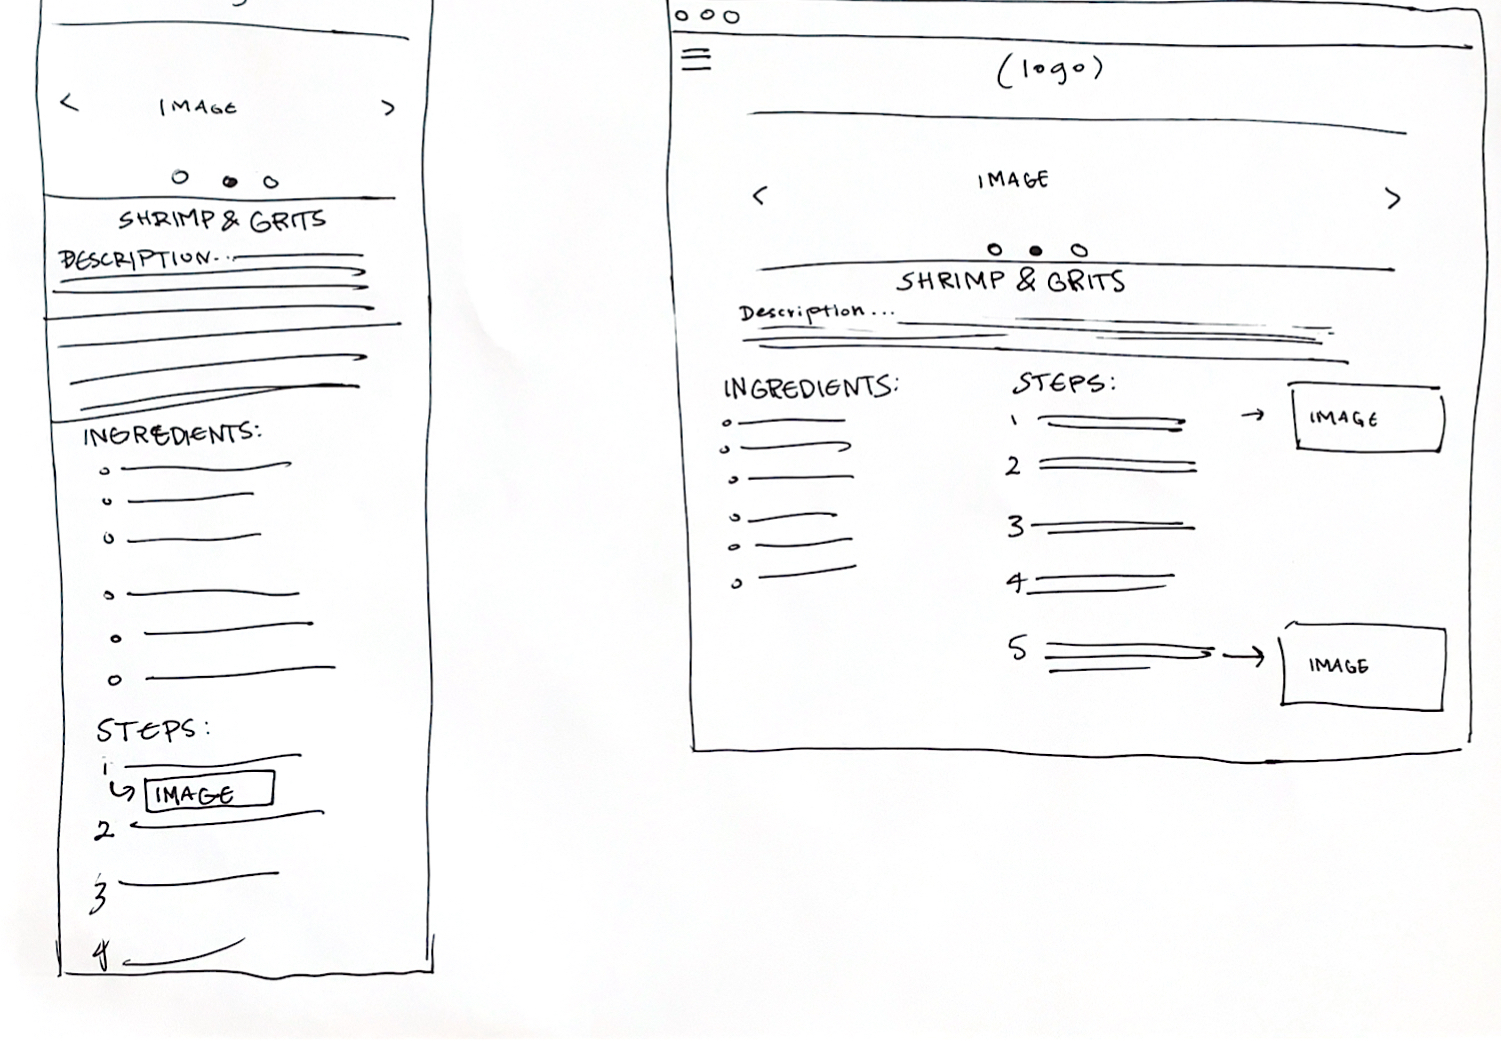 < IMAGE >
SHRIMP & GRITS
DESCRIPTION...
INGREDIENTS:
STEPS:
1
IMAGE
2
3
4
(logo)
IMAGE
< >
SHRIMP & GRITS
Description...
INGREDIENTS:
STEPS:
1
IMAGE
2
3
4
5
IMAGE